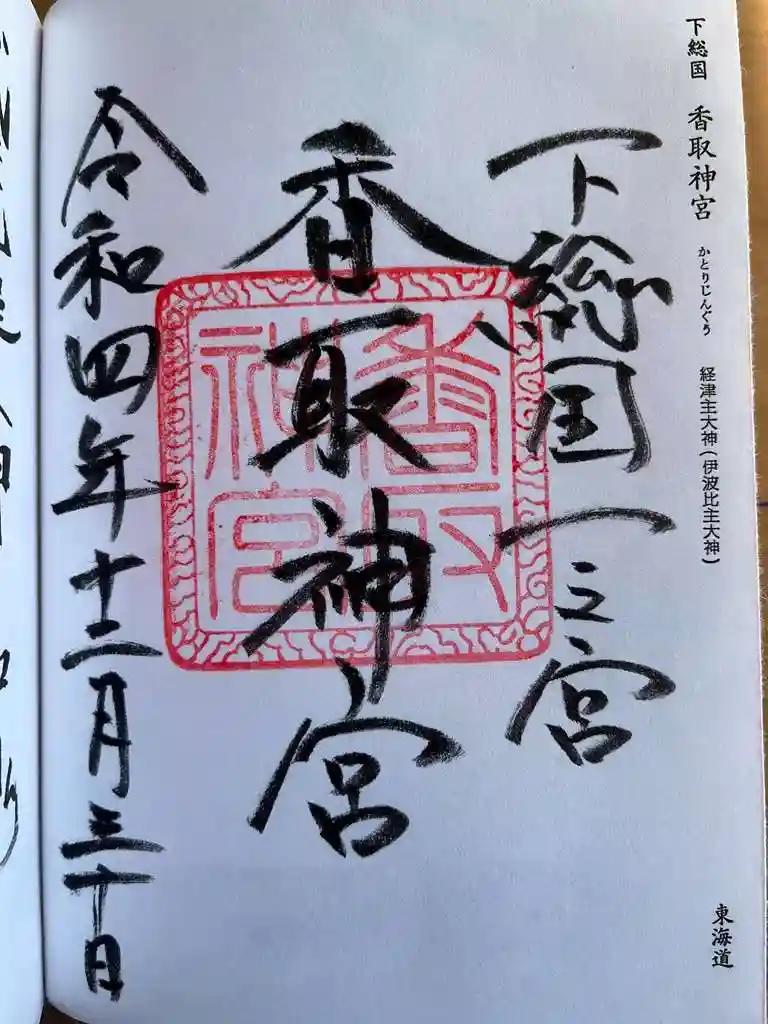 下総国 香取神宮 かとりじんぐう 経津主大神(伊波比主大神)
東海道
下総国一之宮
香取神宮
香取神宮
令和四年十二月三十日